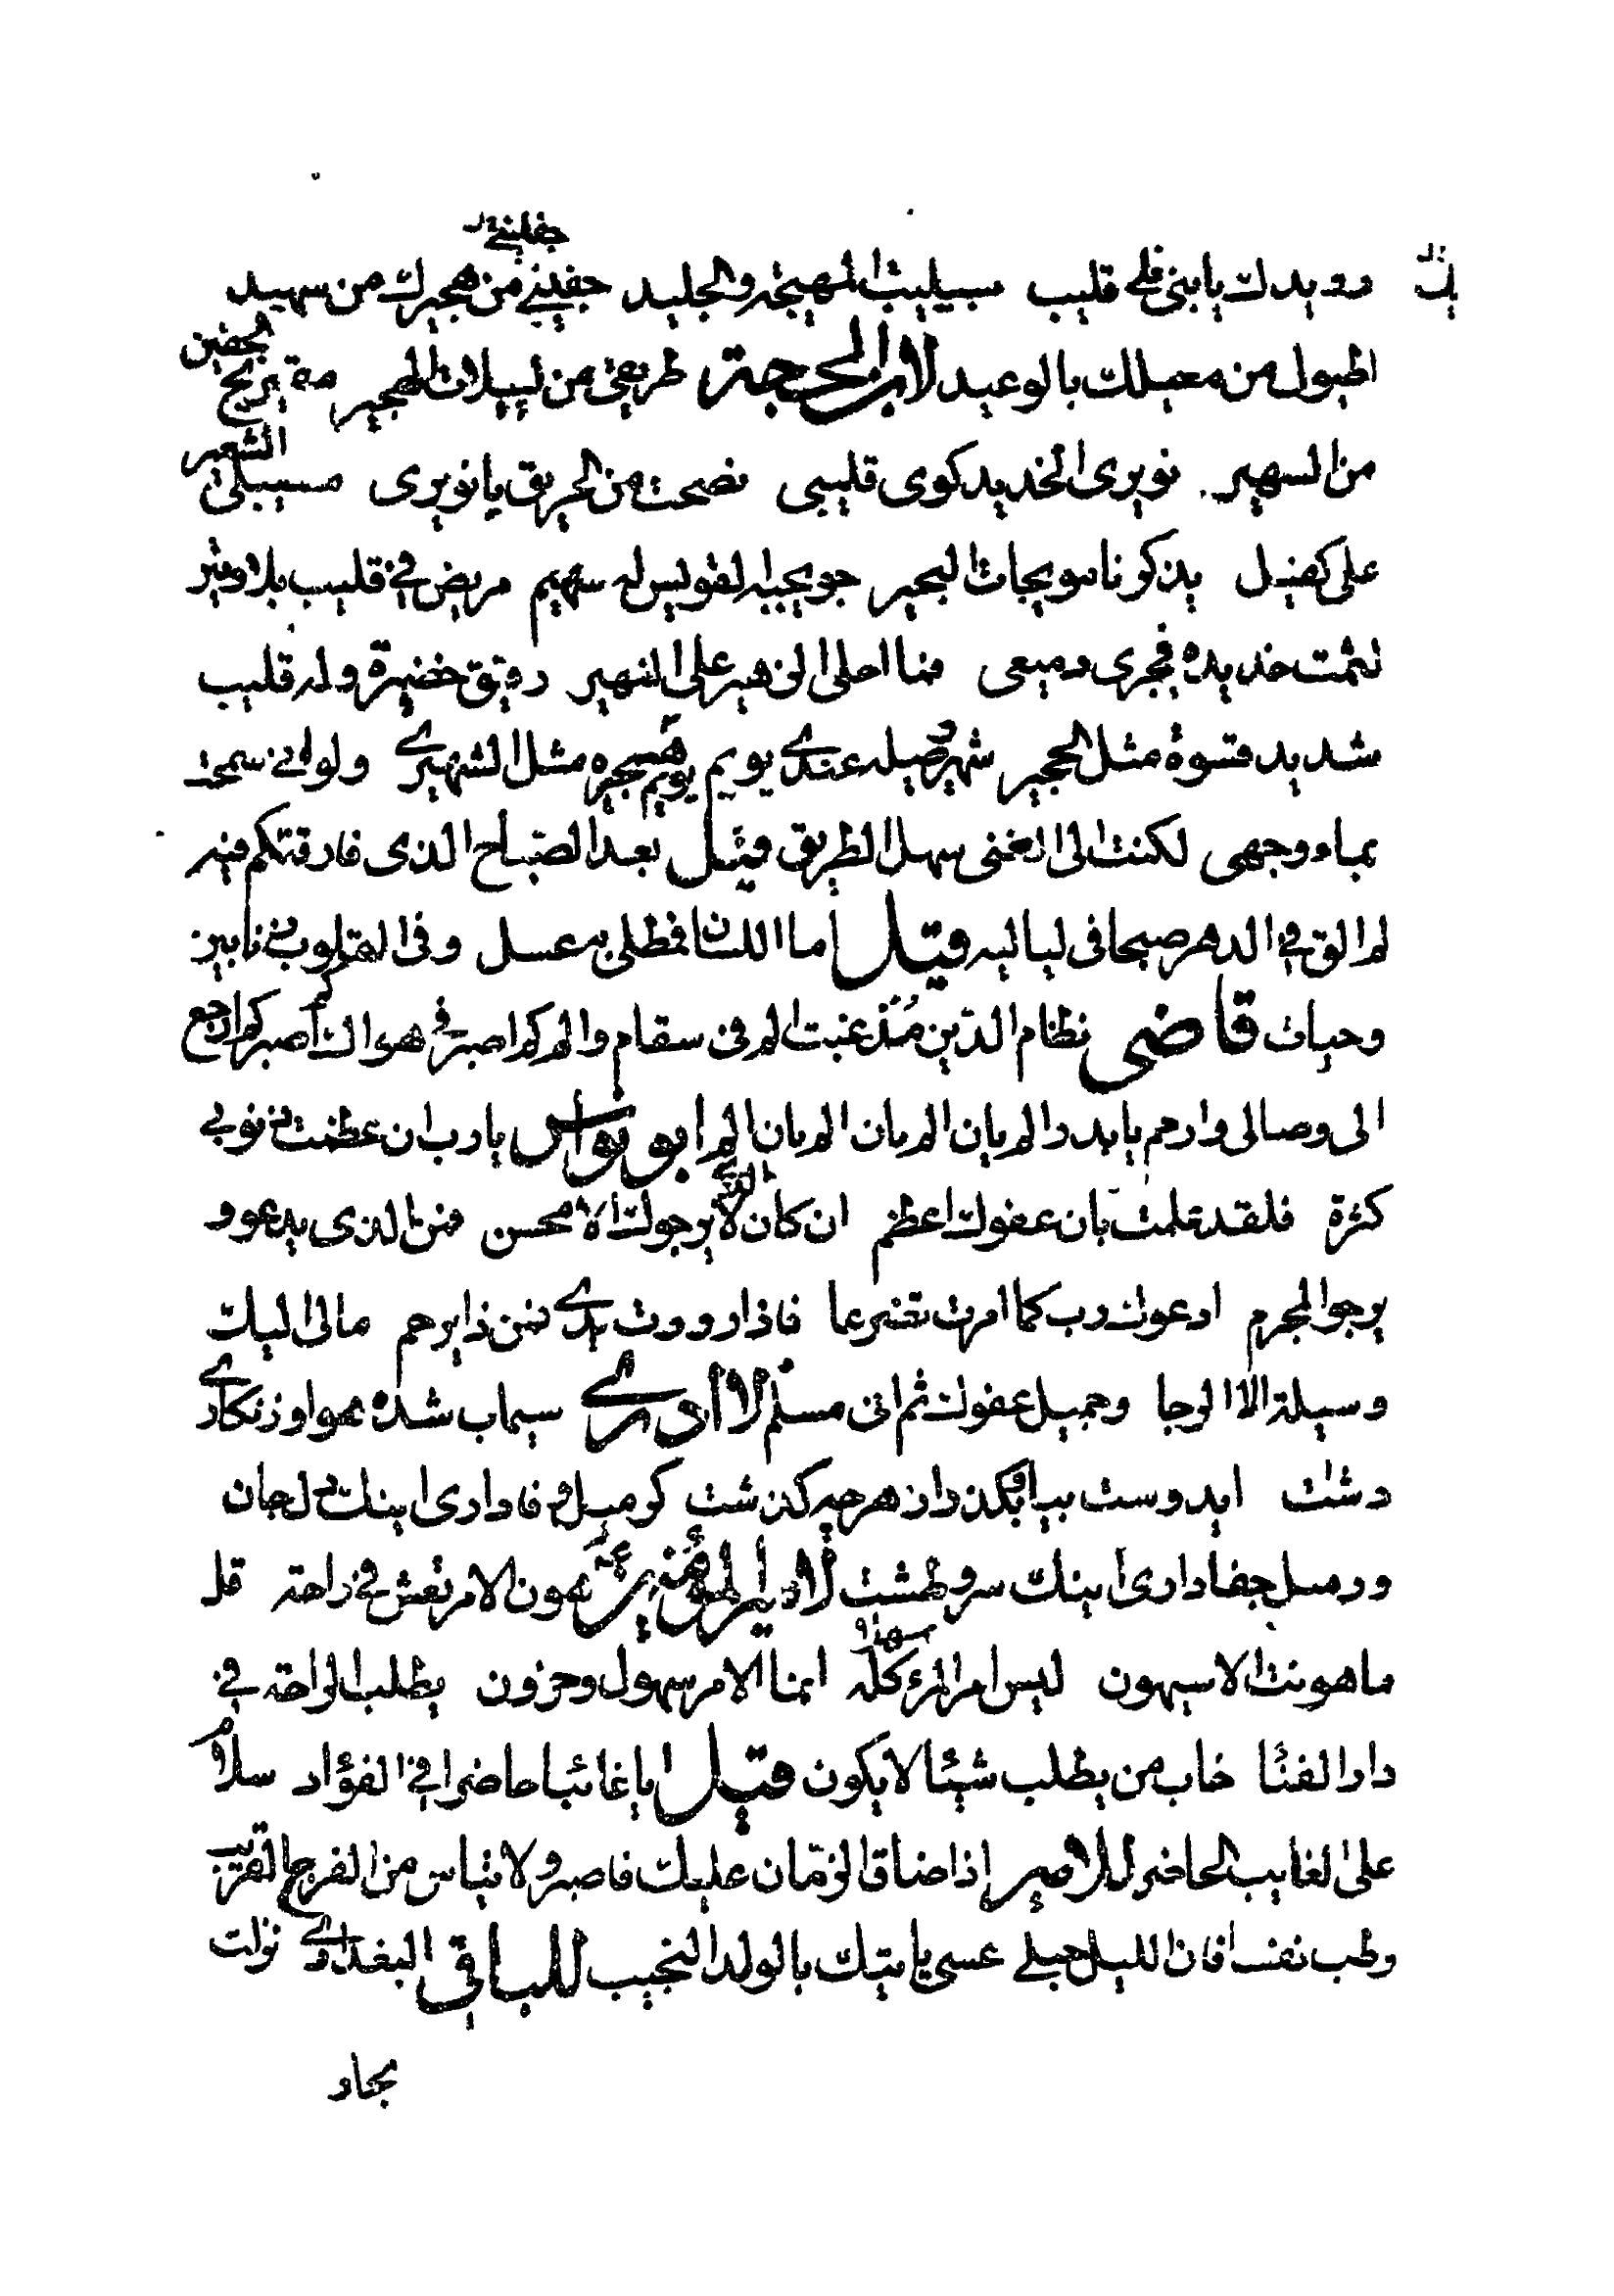 رويدك يا بني فلي قليب سيليب المهيجة والجليد جفيني من هجيرك من سهيد
اطيول من مطيلك بالوعيد لابن الحجة طريفي من لييلات الهجير مقيريح الجفين
من السهير نويرى الخديد كوى قليبى نصحت من الحريق يا نويرى مسيبلى الشعير
على كفيل يذكرنا مويجات البحير جويجبه لقويس له سهيم مريض في قليب بلا وتير
لثمت خديده فجرى دميعى فما احلى الزهير على النهير رقيق خضيرة وله قليب
شديد قسوة مثل الحجير شهير وصيله عندي يويم يويم هجيره مثل الشهير ولو اني سمحت
بماء وجهى لكنت الى الغنى سهل الطريق قيل بعد الصباح الذى فارقتكم فيه
لم الق في الدهر صبحا فى لياليه قيل اما اللسان فمطلى به عسل وفى القلوب زنابير
وحيات قاضى نظام الدين مذ غبت الم فى سقام والم كم اصبر في هواك كم اصبر كم ارجع
الى وصالى وارحم يا بدر الم يان الم يان الم يان الم ابو نواس يا رب ان عظمت ذنوبي
كثرة فلقد علمت بان عفوك اعظم ان كان لا يرجوك الا محسن فمن الذى يدعو و
يرجو المجرم ادعوك رب كما امرت تضرعا فاذا رددت يدي فمن ذا يرحم مالى اليك
وسيلة الا الرجا وجميل عفوك ثم انى مسلم لا ادري سيماب شده هوا و زنكاري
دشت ايدوست بيا بكذر از هرچه كذشت كر ميل وفا دارى اينك دل جان
ور ميل جفا دارى اينك سر و طشت لامير المؤمنين هون الامر تعش في راحة قل
ما هونت الا سيهون ليس امر المرء كله سهلا انما الامر سهول وحزون يطلب الراحة في
دار الفنا خاب من يطلب شيئا لا يكون قيل ايا غائبا حاضرا في الفؤاد سلام
على الغايب الحاضر للامير اذا ضاق الزمان عليك فاصبر ولا تياس من الفرج القريب
وطب نفسا فان الليل حبلي عسى ياتيك بالولد النجيب للباقى البغدادي نزلت
بجاد